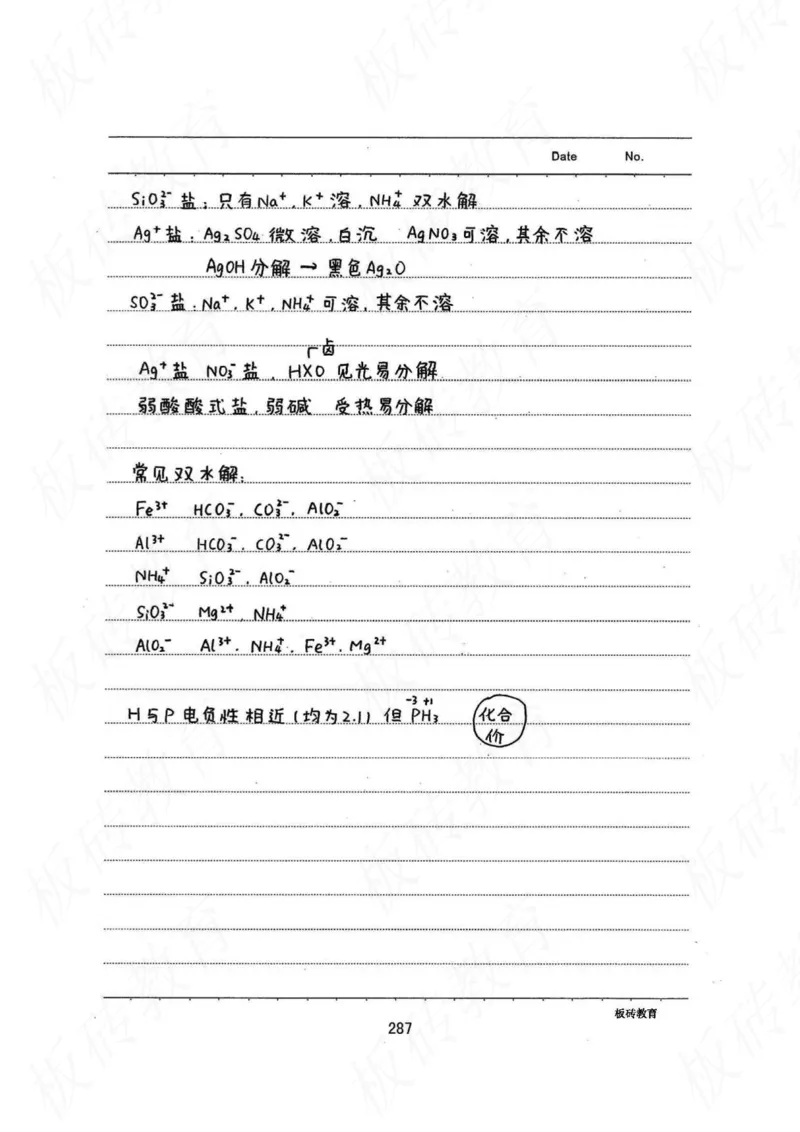 Date No.
SiO₃²⁻ 盐：只有Na⁺、K⁺溶，NH₄⁺ 双水解
Ag⁺盐：Ag₂SO₄ 微溶，白沉 AgNO₃可溶，其余不溶
AgOH分解 → 黑色Ag₂O
SO₃²⁻ 盐：Na⁺、K⁺、NH₄⁺ 可溶，其余不溶
卤
Ag⁺盐 NO₃⁻盐、HXO 见光易分解
弱酸酸式盐，弱碱 受热易分解
常见双水解：
Fe³⁺ HCO₃⁻、CO₃²⁻、AlO₂⁻
Al³⁺ HCO₃⁻、CO₃²⁻、AlO₂⁻
NH₄⁺ SiO₃²⁻、AlO₂⁻
SiO₃²⁻ Mg²⁺、NH₄⁺
AlO₂⁻ Al³⁺、NH₄⁺、Fe³⁺、Mg²⁺
-3 +1
H与P电负性相近(均为2.1) 但 PH₃ 化合
价
板砖教育
287